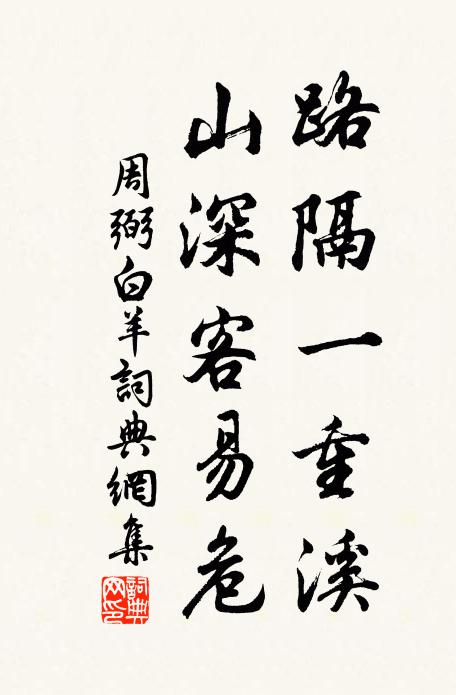 路隔一重溪
山深客易危
周弼白羊詞典網集
詞典网印